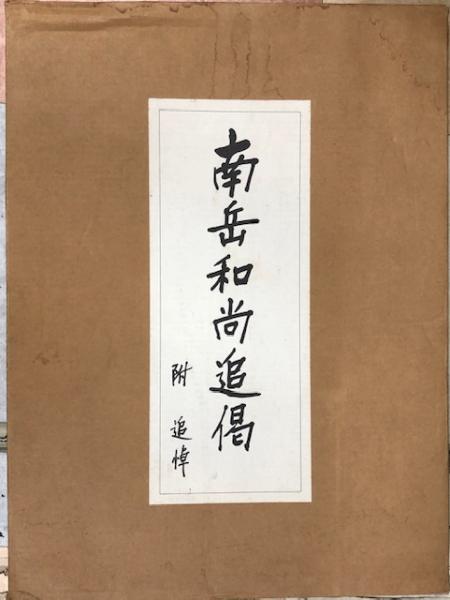 南岳和尚追偈
附 追悼